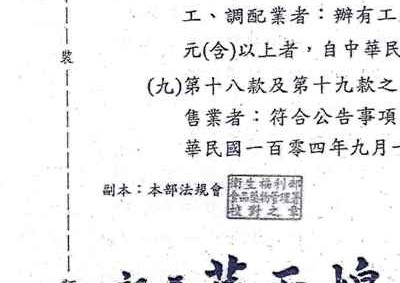 工、調配業者：辦有工
元(含)以上者，自中華民
裝
(九)第十八款及第十九款之
售業者：符合公告事項
華民國一百零四年九月十
副本：本部法規會
衛生福利部
食品藥物管理署
校對之章